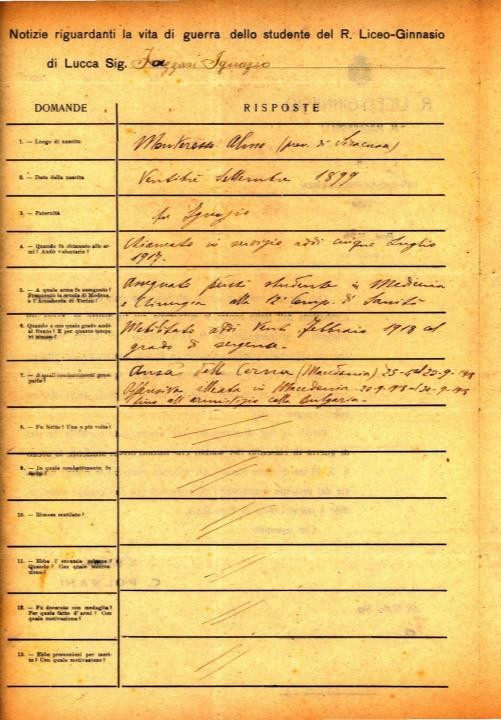 Notizie riguardanti la vita di guerra dello studente del R. Liceo-Ginnasio
di Lucca Sig. Fazzari Ignazio
DOMANDE
RISPOSTE
1. — Luogo di nascita
Monterosso Almo (prov. di Siracusa)
2. — Data della nascita
Ventitrè Settembre 1899
3. — Paternità
fu Ignazio
4. — Quando fu chiamato alle armi? Andò volontario?
Chiamato in servizio addì cinque Luglio
1917.
5. — A quale arma fu assegnato?
Frequentò la scuola di Modena,
o l'Accademia di Torino?
Assegnato perché studente in Medicina
e Chirurgia alla 12ª Comp. di Sanità
6. Quando e con quale grado andò
al fronte? E per quanto tempo
vi rimase?
Mobilitato addì venti Febbraio 1918 col
grado di sergente.
7. — A quali combattimenti prese
parte?
Ansa della Cerna (Macedonia)
Offensiva alleata in Macedonia
fino all'armistizio colla Bulgaria.
8. — Fu ferito? Una o più volte?
9. — In quale combattimento fu
ferito?
10. — Rimase mutilato?
11. — Ebbe l'encomio solenne?
Quando? Con quale motivazione?
12. — Fu decorato con medaglia?
Per quale fatto d'armi? Con
quale motivazione?
13. — Ebbe promozioni per merito? Con quale motivazione?